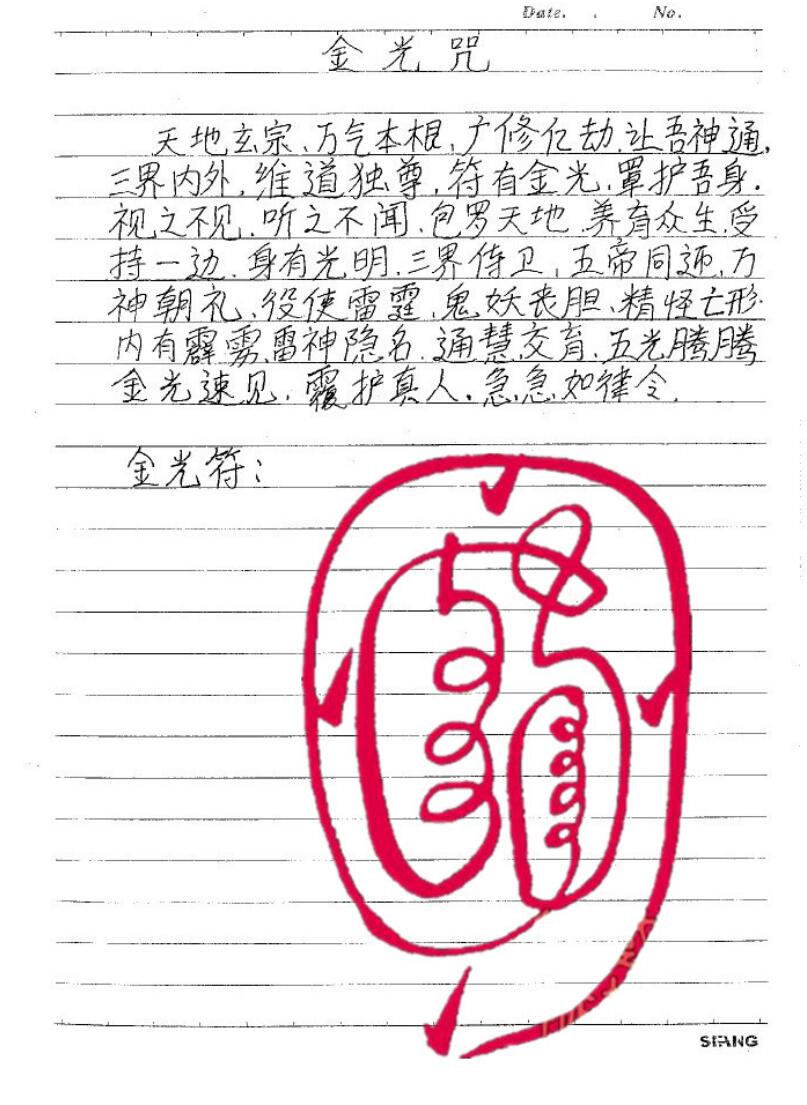 Date. . No.
金光咒
天地玄宗、万气本根、广修亿劫、让吾神通,
三界内外,维道独尊,符有金光,罩护吾身.
视之不见、听之不闻、包罗天地、养育众生、受
持一边、身有光明、三界侍卫、五帝同迊、万
神朝礼、役使雷霆、鬼妖丧胆、精怪亡形.
内有霹雳、雷神隐名、通慧交育、五光腾腾
金光速见、覆护真人.急急如律令.
金光符:
SIANG